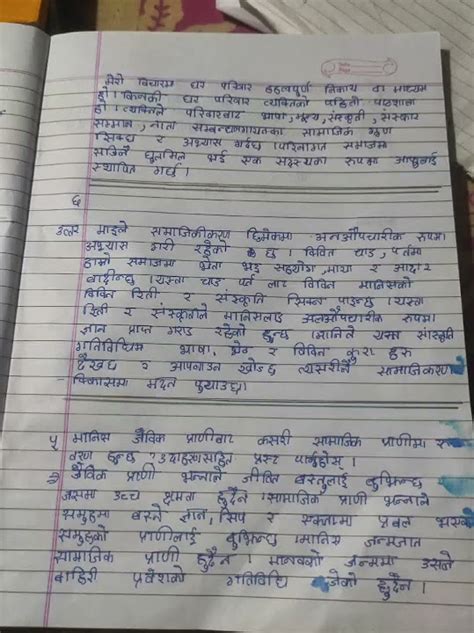 मेरो विचारमा घर परिवार महत्वपूर्ण निकाय वा माध्यम
हो । किनकी घर परिवार व्यक्तिको पहिलो पाठशाला
हो । व्यक्तिले परिवारबाट भाषा, मूल्य, संस्कृती, संस्कार
सम्मान, नाता सम्बन्ध लगायतका सामाजिक गुण
सिक्छ र अभ्यास गर्दछ । परिणामत समाजमा
सजिलै घुलमिल भई एक सदस्यका रुपमा आफूलाई
स्थापित गर्छ ।
६
उत्तर माइले सामाजिकीकरण छिमेकमा अनऔपचारीक रुपमा
अभ्यास गरी रहेको छु । विवित चाड, पर्वमा
हाम्रो समाजमा भेला भई सहयोग, माया र आदर
बाडीन्छु । यस्ता चाड पर्व लाट विवित मानिसको
विवित रिती, र संस्कृति सिक्न पाइन्छ । यस्ता
रिती र संस्कृतीले मानिसलाई अनऔपचारिक रुपमा
ज्ञान प्राप्त गराइ रहेको हुन्छ । मानिले यस्त संस्कृति
गतिविधिमा भाषा, भेग र विवित कुरा हरु
देख्छ र अपनाउन खोज्छ त्यसरीले सामाजिकरण
विकासमा मद्दत पुर्‍याउछ ।
५ मानिस जैविक प्राणीबाट कसरी सामाजिक प्राणीमा रु
वरण हुन्छ ? उदाहरणसहित प्रस्ट पार्नुहोस् ।
जैविक प्राणी भन्नाले जीवित वस्तुलाई बुझिन्छ
जसमा उच्च क्षमता हुदैन । सामाजिक प्राणी भन्नाले
समुहमा बस्ने ज्ञान, सिप र सक्तामा प्रबल भएको
समुहको प्राणीलाई बुझिन्छ । मानिस जन्मजात
सामाजिक प्राणी हुदैन । मानवको जन्ममा उसले
बाहिरी प्रवेशको गतिविधि हुदैन ।